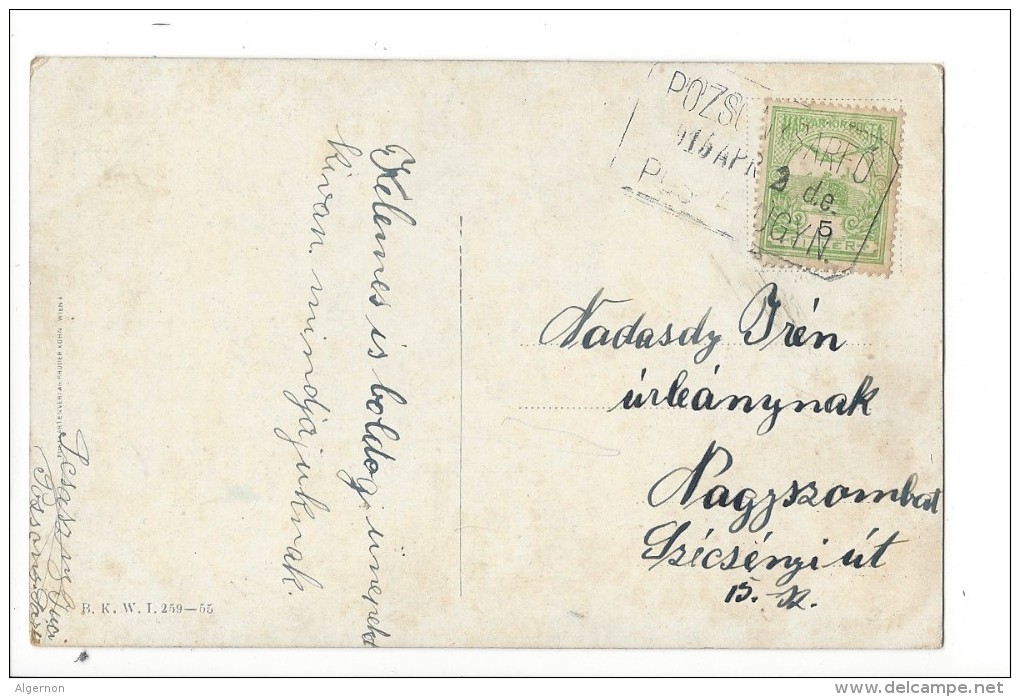 Kelemes is boldog ünnepeket
kivan mindjajuknak.
B. K. W. I. 259—55
POZSO
916 APR
2 d.e.
ÜGYN.
MAGYAR KIR. POSTA
5
Nadasdy Irén
úrleánynak
Nagyszombat
Szécsényi út
15. sz.
Algernon
delcampe.net